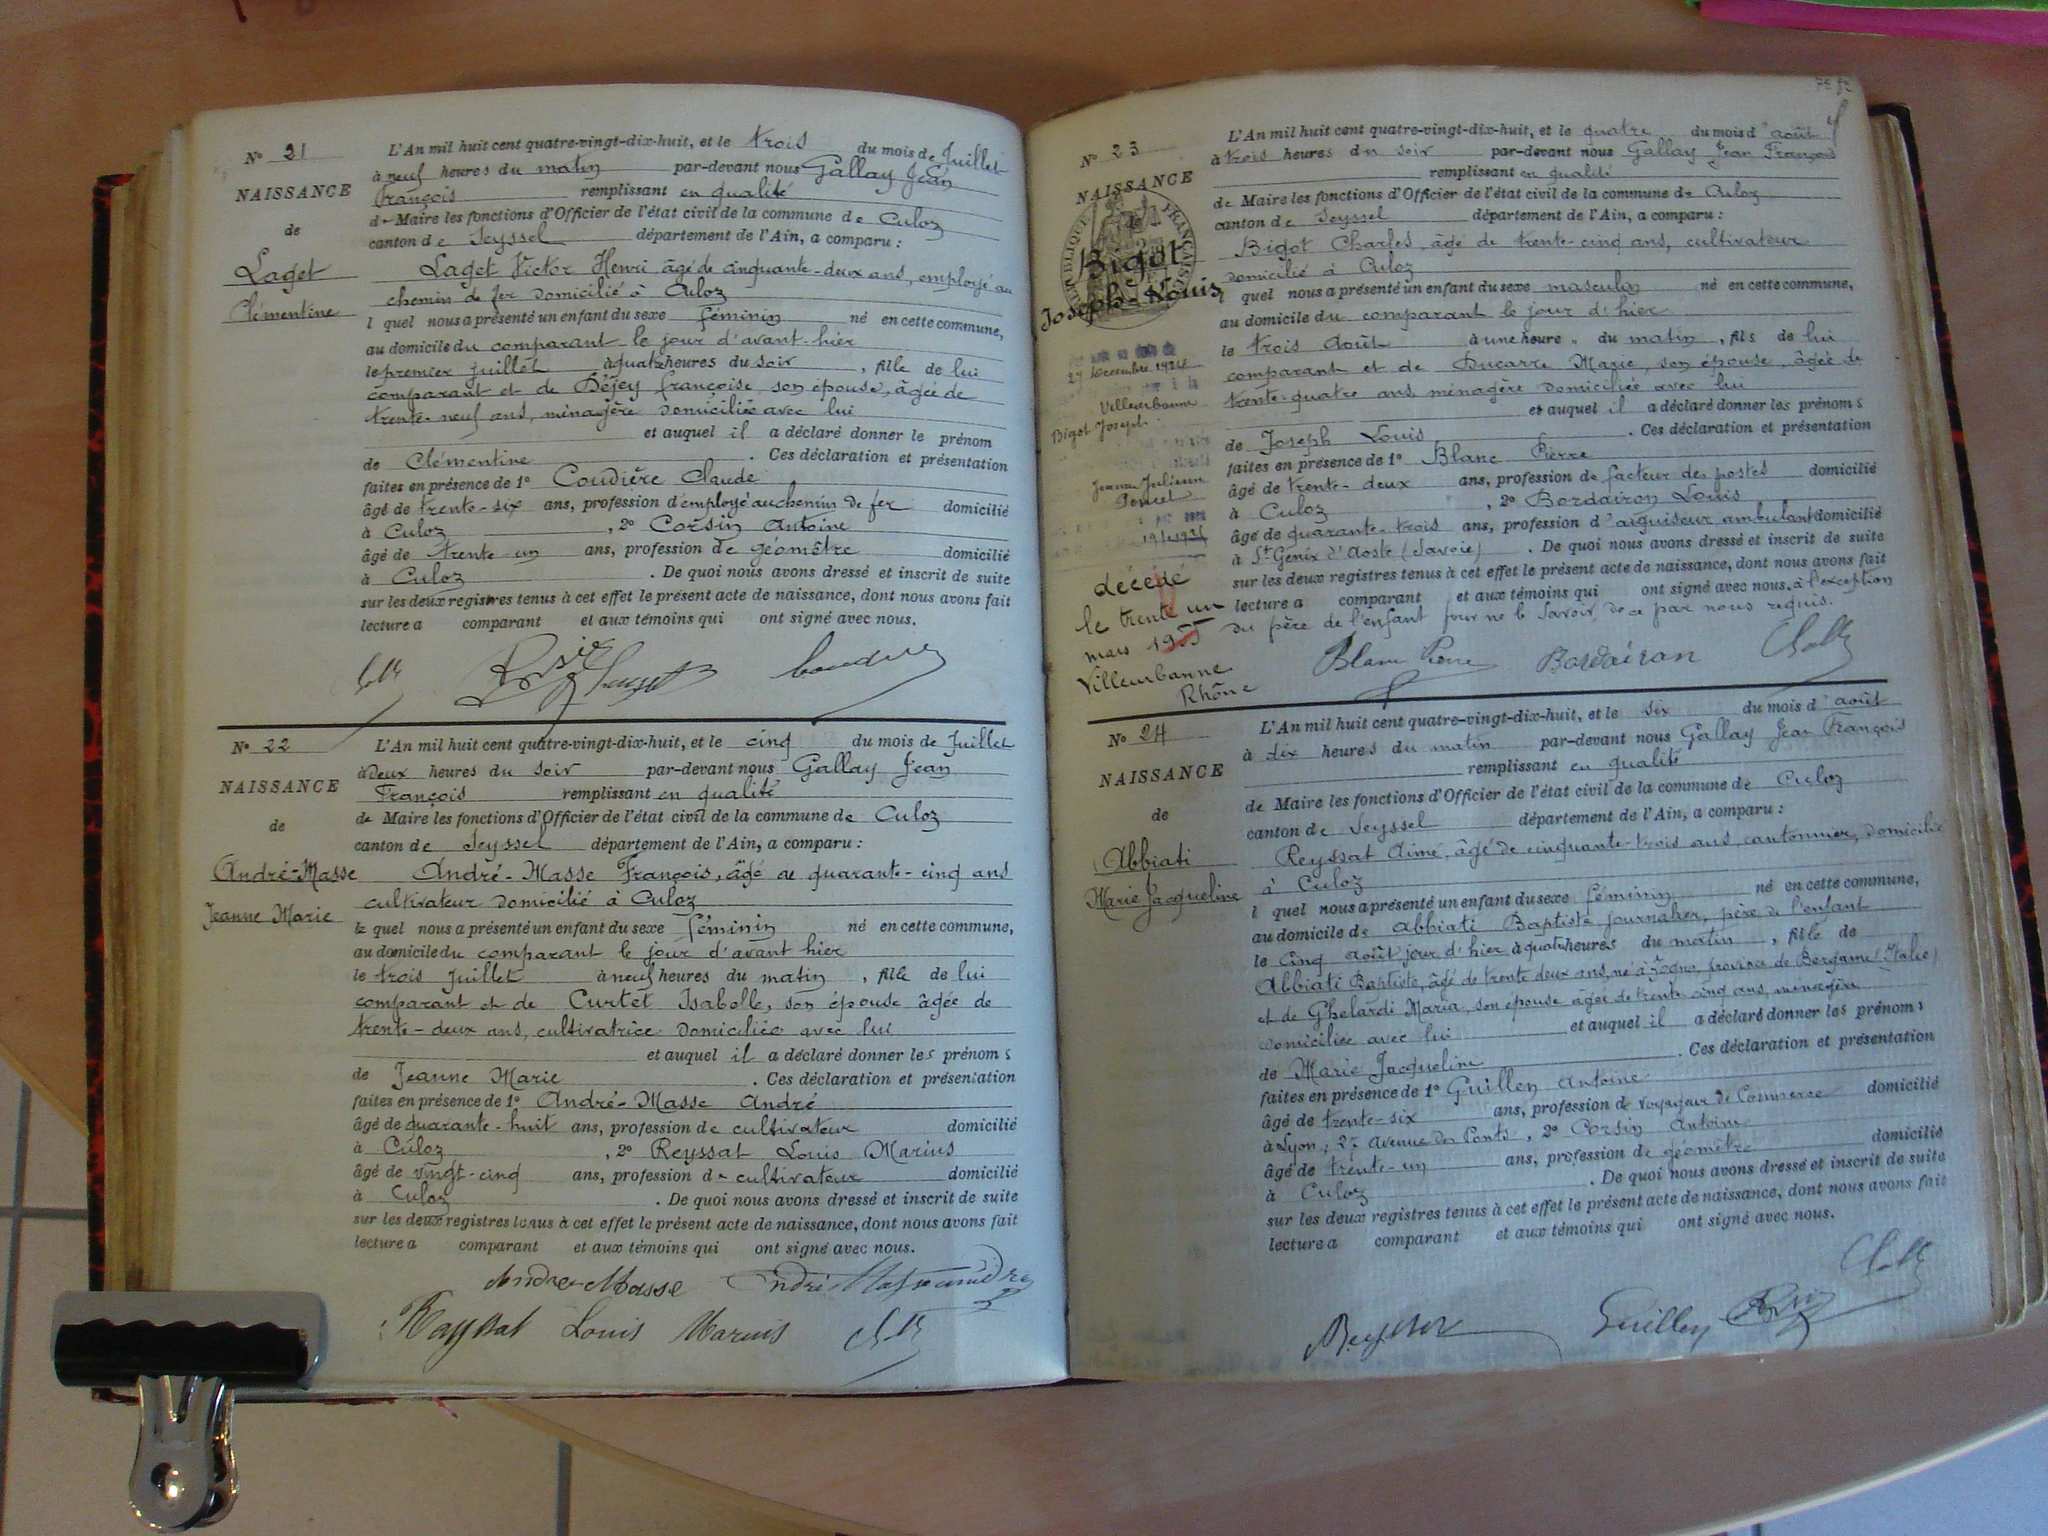 N° 21
NAISSANCE
de
Laget
Clémentine
L'An mil huit cent quatre-vingt-dix-huit, et le trois du mois de Juillet
à neuf heures du matin par-devant nous Gallay Jean
François remplissant en qualité
de Maire les fonctions d'Officier de l'état civil de la commune de Culoz
canton de Seyssel département de l'Ain, a comparu :
Laget Victor Henri âgé de cinquante-deux ans, employé au
chemin de fer domicilié à Culoz
l quel nous a présenté un enfant du sexe féminin né en cette commune,
au domicile du comparant le jour d'avant-hier
le premier juillet à quatre heures du soir, fille de lui
comparant et de Déjey Françoise, son épouse, âgée de
trente-neuf ans, ménagère domiciliée avec lui
et auquel il a déclaré donner le prénom
de Clémentine. Ces déclaration et présentation
faites en présence de 1° Coudière Claude
âgé de trente-six ans, profession d'employé au chemin de fer domicilié
à Culoz, 2° Corsin Antoine
âgé de trente un ans, profession de géomètre domicilié
à Culoz. De quoi nous avons dressé et inscrit de suite
sur les deux registres tenus à cet effet le présent acte de naissance, dont nous avons fait
lecture a comparant et aux témoins qui ont signé avec nous.
N° 22
NAISSANCE
de
André-Masse
Jeanne Marie
L'An mil huit cent quatre-vingt-dix-huit, et le cinq du mois de Juillet
à deux heures du soir par-devant nous Gallay Jean
François remplissant en qualité
de Maire les fonctions d'Officier de l'état civil de la commune de Culoz
canton de Seyssel département de l'Ain, a comparu :
André-Masse François, âgé de quarante-cinq ans
cultivateur domicilié à Culoz
le quel nous a présenté un enfant du sexe féminin né en cette commune,
au domicile du comparant le jour d'avant hier
le trois Juillet à neuf heures du matin, fille de lui
comparant et de Curtet Isabelle, son épouse âgée de
trente-deux ans, cultivatrice domiciliée avec lui
et auquel il a déclaré donner les prénoms
de Jeanne Marie. Ces déclaration et présentation
faites en présence de 1° André-Masse André
âgé de quarante-huit ans, profession de cultivateur domicilié
à Culoz, 2° Reyssat Louis Marius
âgé de vingt-cinq ans, profession de cultivateur domicilié
à Culoz. De quoi nous avons dressé et inscrit de suite
sur les deux registres tenus à cet effet le présent acte de naissance, dont nous avons fait
lecture a comparant et aux témoins qui ont signé avec nous.
André-Masse
Reyssat Louis Marius
N° 23
NAISSANCE
de
Bigot
Joseph-Louis
27 décembre 1924
Villeurbanne
Bigot Joseph
Jeanne Julienne
Poncet
décédé
le trente un
mars 1955
Villeurbanne
Rhône
L'An mil huit cent quatre-vingt-dix-huit, et le quatre du mois d'août
à trois heures du soir par-devant nous Gallay Jean François
remplissant en qualité
de Maire les fonctions d'Officier de l'état civil de la commune de Culoz
canton de Seyssel département de l'Ain, a comparu :
Bigot Charles, âgé de trente-cinq ans, cultivateur
domicilié à Culoz
l quel nous a présenté un enfant du sexe masculin né en cette commune,
au domicile du comparant le jour d'hier
le trois Août à une heure du matin, fils de lui
comparant et de Ducarre Marie, son épouse, âgée de
trente-quatre ans, ménagère domiciliée avec lui
et auquel il a déclaré donner les prénoms
de Joseph Louis. Ces déclaration et présentation
faites en présence de 1° Blanc Pierre
âgé de trente-deux ans, profession de facteur des postes domicilié
à Culoz, 2° Bordairon Louis
âgé de quarante-trois ans, profession d'aiguiseur ambulant domicilié
à St Genix d'Aoste (Savoie). De quoi nous avons dressé et inscrit de suite
sur les deux registres tenus à cet effet le présent acte de naissance, dont nous avons fait
lecture a comparant et aux témoins qui ont signé avec nous. à l'exception
du père de l'enfant pour ne le savoir, de ce par nous requis.
Blanc Pierre Bordairon
N° 24
NAISSANCE
de
Abbiati
Marie Jacqueline
L'An mil huit cent quatre-vingt-dix-huit, et le six du mois d'août
à dix heures du matin par-devant nous Gallay Jean François
remplissant en qualité
de Maire les fonctions d'Officier de l'état civil de la commune de Culoz
canton de Seyssel département de l'Ain, a comparu :
Reyssat Aimé, âgé de cinquante-trois ans, cantonnier, domicilié
à Culoz
l quel nous a présenté un enfant du sexe féminin né en cette commune,
au domicile de Abbiati Baptiste journalier, père de l'enfant
le cinq août jour d'hier à quatre heures du matin, fille de
Abbiati Baptiste, âgé de trente deux ans, né à Zogno, province de Bergame (Italie)
et de Ghelardi Maria, son épouse âgée de trente cinq ans, ménagère
domiciliée avec lui et auquel il a déclaré donner les prénoms
de Marie Jacqueline. Ces déclaration et présentation
faites en présence de 1° Guillen Antoine
âgé de trente-six ans, profession de voyageur de Commerce domicilié
à Lyon, 27 avenue des Ponts, 2° Corsin Antoine
âgé de trente-un ans, profession de géomètre domicilié
à Culoz. De quoi nous avons dressé et inscrit de suite
sur les deux registres tenus à cet effet le présent acte de naissance, dont nous avons fait
lecture a comparant et aux témoins qui ont signé avec nous.
Guillen